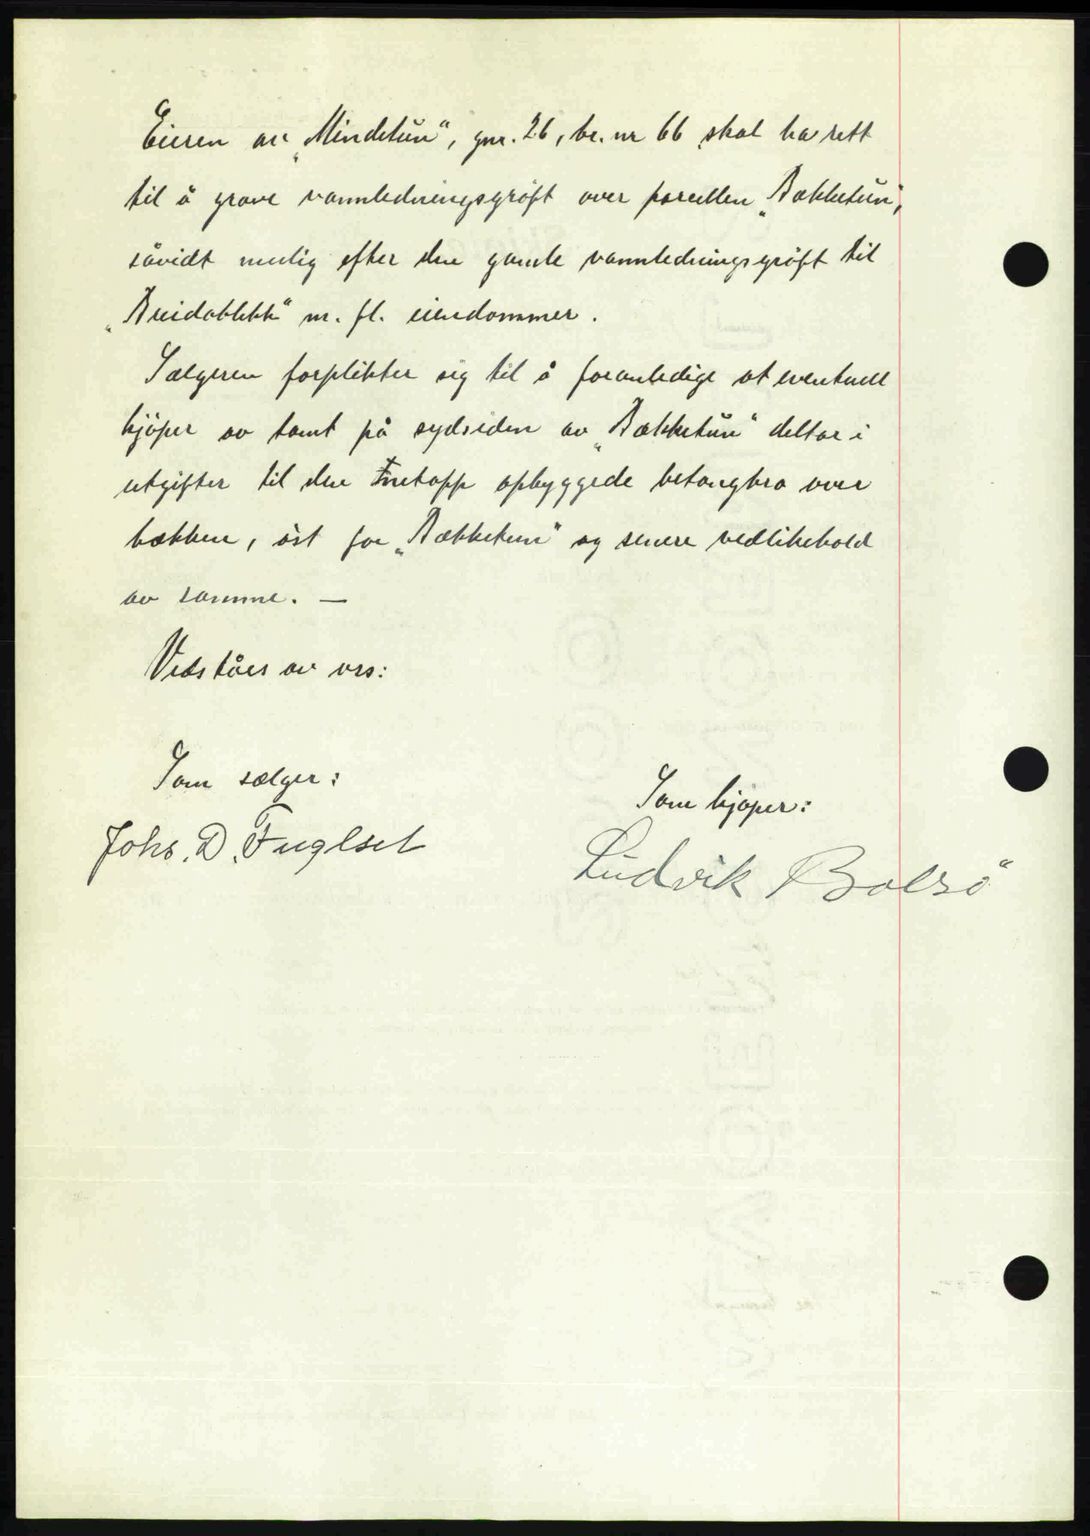 Eieren av „Mindetun", gnr. 26, br. nr 66 skal ha rett
til å grave vannledningsgrøft over parcellen „Bækketun",
såvidt mulig efter den gamle vannledningsgrøft til
„Breidablikk" m. fl. eiendommer.
Sælgeren forplikter sig til å foranledige at eventuell
kjøper av tomt på sydsiden av „Bækketun" deltar i
utgifter til den netopp opbyggede betongbro over
bækken, øst for „Bækketun" og senere vedlikehold
av samme. —
Vedståes av oss:
Som sælger:
Som kjøper:
Johs. D. Fuglset
Ludvik Bolsö